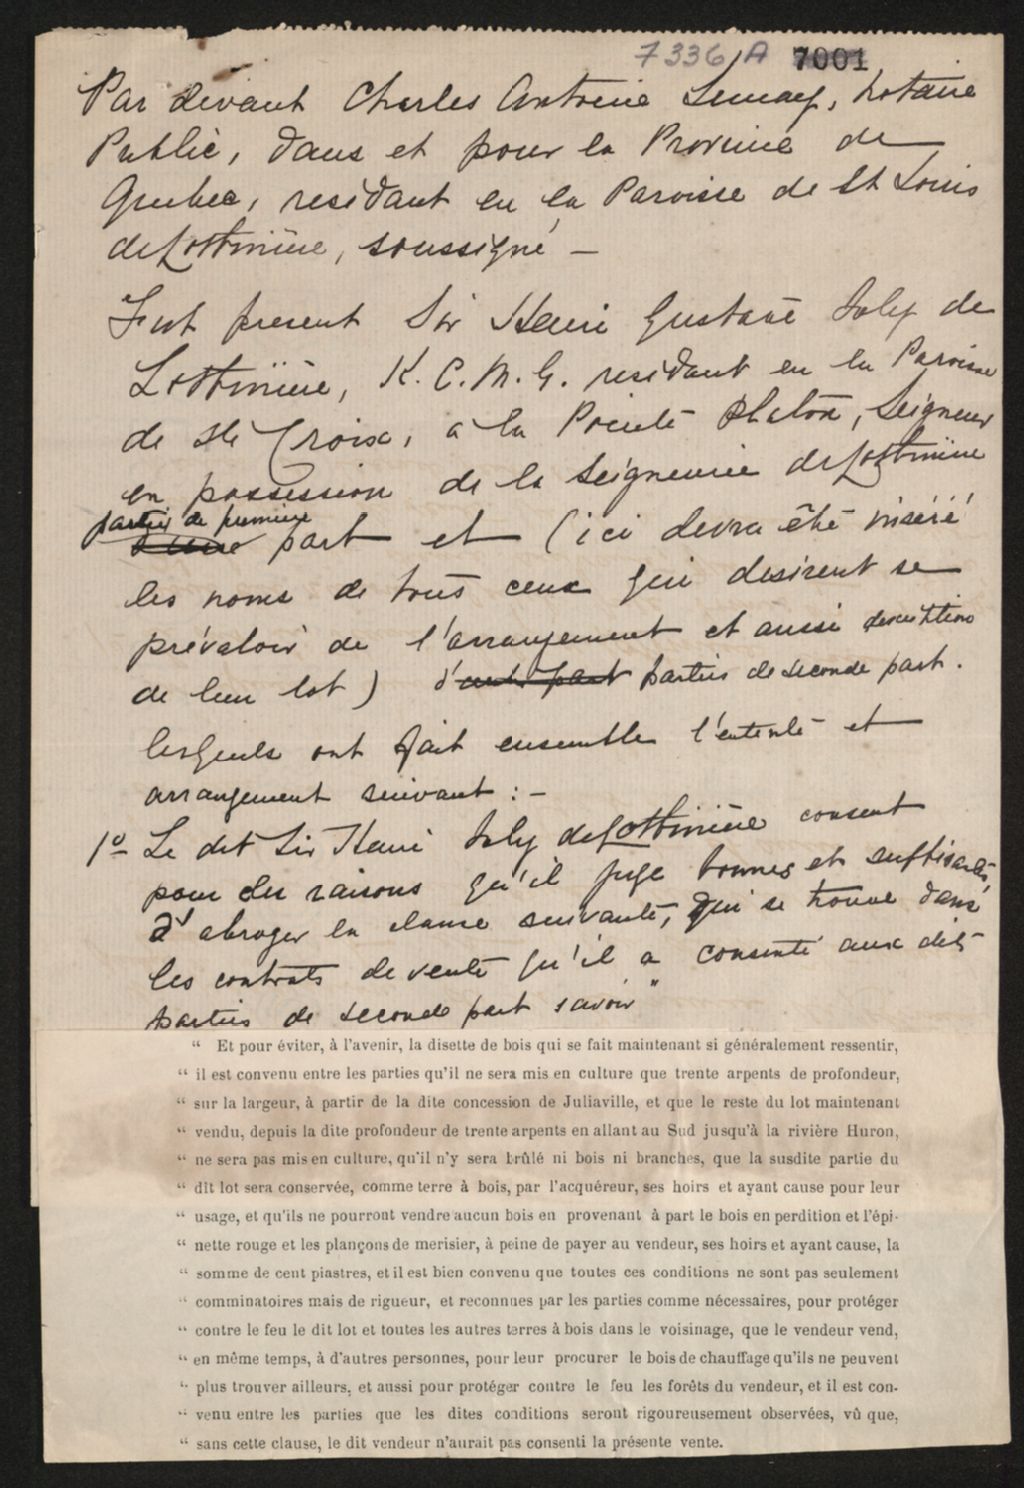 7336/A 7001
Par devant Charles Antoine Lemay, Notaire
Public, dans et pour la Province de
Quebec, residant en la Paroisse de St Louis
de Lotbinière, soussigné —
Fut present Sir Henri Gustave Joly de
Lotbinière, K.C.M.G. residant en la Paroisse
de Ste Croix, à la Pointe Platon, Seigneur
en possession de la Seigneurie de Lotbinière
partie de première
d'une part et (ici devra être inséré
les noms de tous ceux qui desirent se
prévaloir de l'arrangement et aussi description
de leur lot) d'autre part parties de seconde part.
lesquels ont fait ensemble l'entente et
arrangement suivant : —
1º Le dit Sir Henri Joly de Lotbinière consent
pour des raisons qu'il juge bonnes et suffisantes,
d'abroger la clause suivante, qui se trouve dans
les contrats de vente qu'il a consenti aux dits
parties de seconde part savoir "
“ Et pour éviter, à l’avenir, la disette de bois qui se fait maintenant si généralement ressentir,
“ il est convenu entre les parties qu’il ne sera mis en culture que trente arpents de profondeur,
“ sur la largeur, à partir de la dite concession de Juliaville, et que le reste du lot maintenant
“ vendu, depuis la dite profondeur de trente arpents en allant au Sud jusqu’à la rivière Huron,
“ ne sera pas mis en culture, qu’il n’y sera brûlé ni bois ni branches, que la susdite partie du
“ dit lot sera conservée, comme terre à bois, par l’acquéreur, ses hoirs et ayant cause pour leur
“ usage, et qu’ils ne pourront vendre aucun bois en provenant à part le bois en perdition et l’épi-
“ nette rouge et les plançons de merisier, à peine de payer au vendeur, ses hoirs et ayant cause, la
“ somme de cent piastres, et il est bien convenu que toutes ces conditions ne sont pas seulement
“ comminatoires mais de rigueur, et reconnues par les parties comme nécessaires, pour protéger
“ contre le feu le dit lot et toutes les autres terres à bois dans le voisinage, que le vendeur vend,
“ en même temps, à d’autres personnes, pour leur procurer le bois de chauffage qu’ils ne peuvent
“ plus trouver ailleurs, et aussi pour protéger contre le feu les forêts du vendeur, et il est con-
“ venu entre les parties que les dites conditions seront rigoureusement observées, vû que,
“ sans cette clause, le dit vendeur n’aurait pas consenti la présente vente.